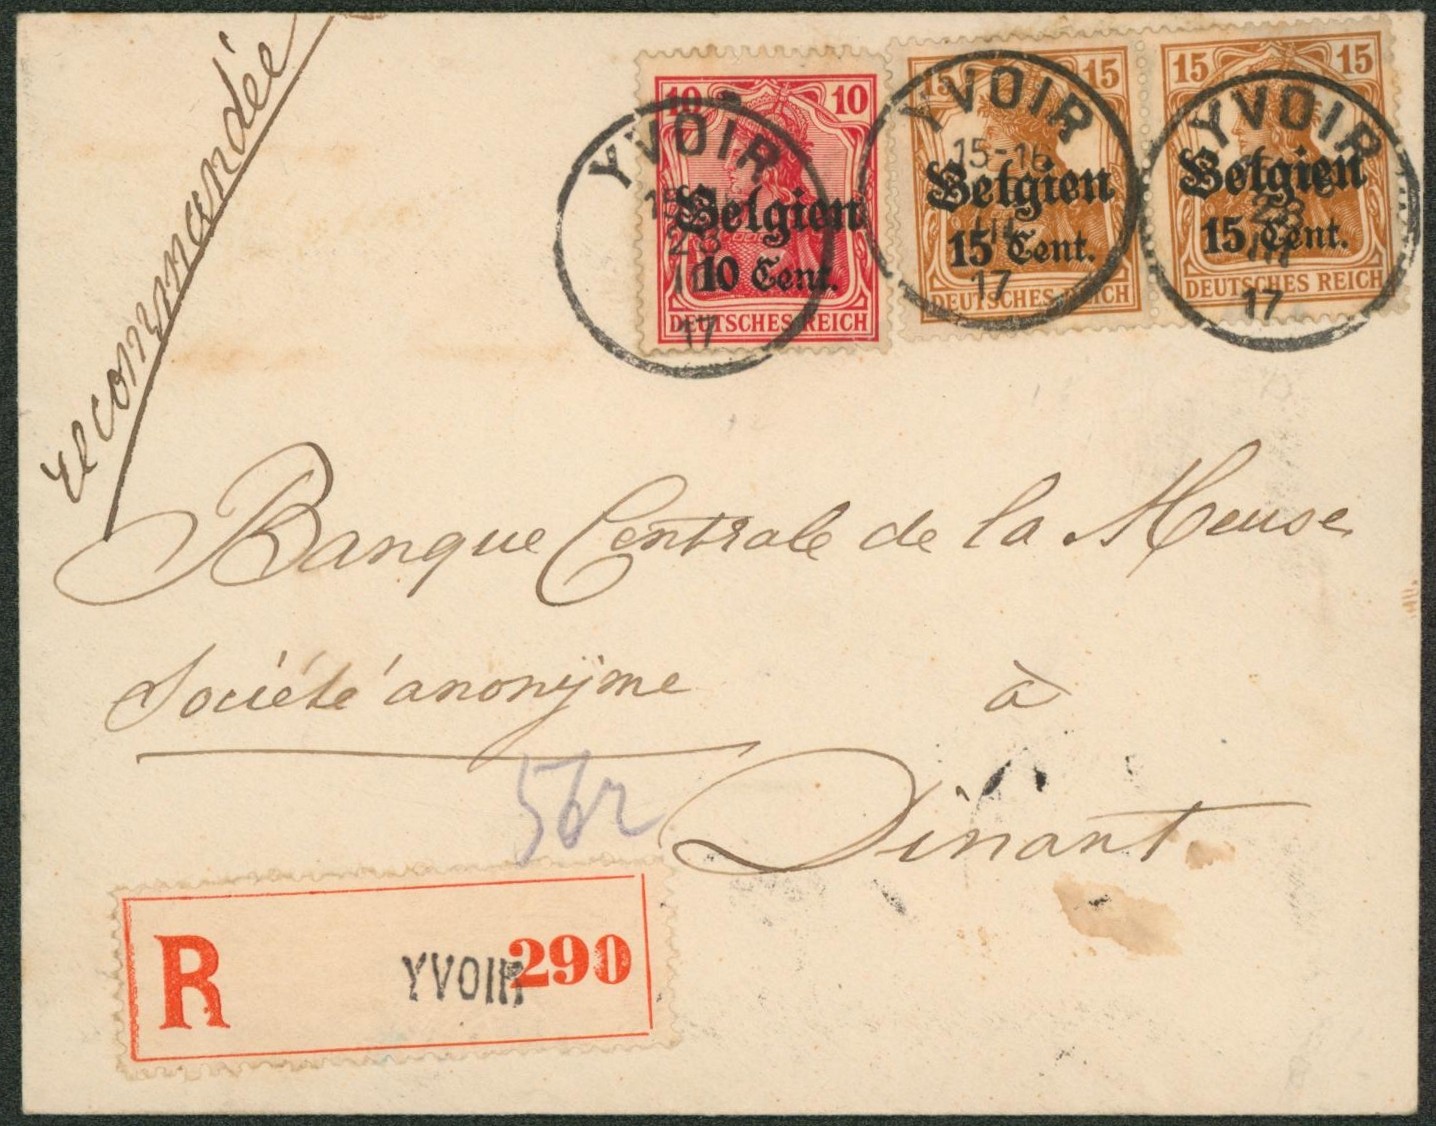 Recommandée
10 10
Belgien
10 Cent.
DEUTSCHES REICH
YVOIR
28
17
15 15
Belgien
15 Cent.
DEUTSCHES REICH
YVOIR
15-16
III
17
15 15
Belgien
15 Cent.
DEUTSCHES REICH
YVOIR
28
III
17
Banque Centrale de la Meuse
Société anonyme à
Dinant
R YVOIR 290